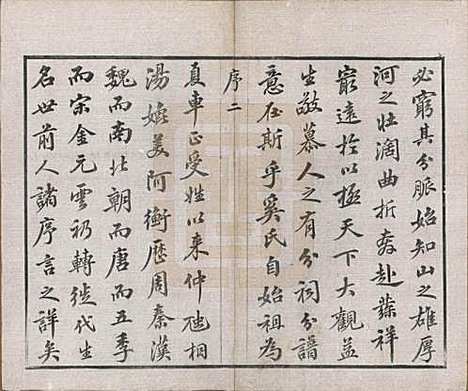 必窮其分脈始知山之雄厚
河之壯濶曲折奔赴
窮遠於以極天下大觀益
生敬慕人之有分祠分譜
意在斯乎奚氏自始祖為
序二
夏車正受姓以來仲虺相
湯嫓美阿衡歷周秦漢
魏而南北朝而唐而五季
而宋金元雲礽轉徙代生
名世前人諸序言之詳矣